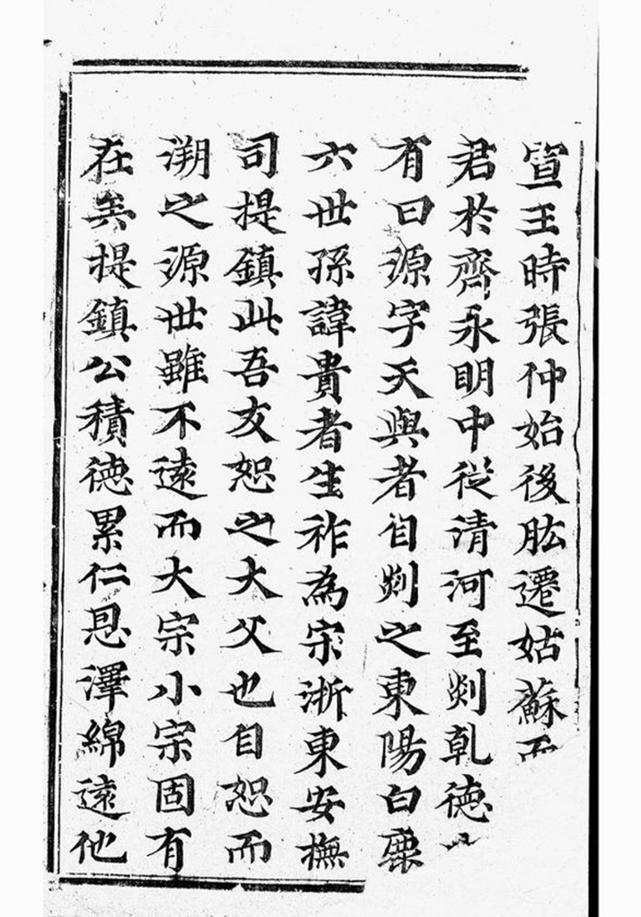 宣王時張仲始後肱遷姑蘇而
君於齊永明中從清河至剡乾德
有曰源字天與者自剡之東陽白鹿
六世孫諱貴者生祚為宋浙東安撫
司提鎮此吾友恕之大父也自恕而
溯之源世雖不遠而大宗小宗固有
在矣提鎮公積德累仁恩澤綿遠他